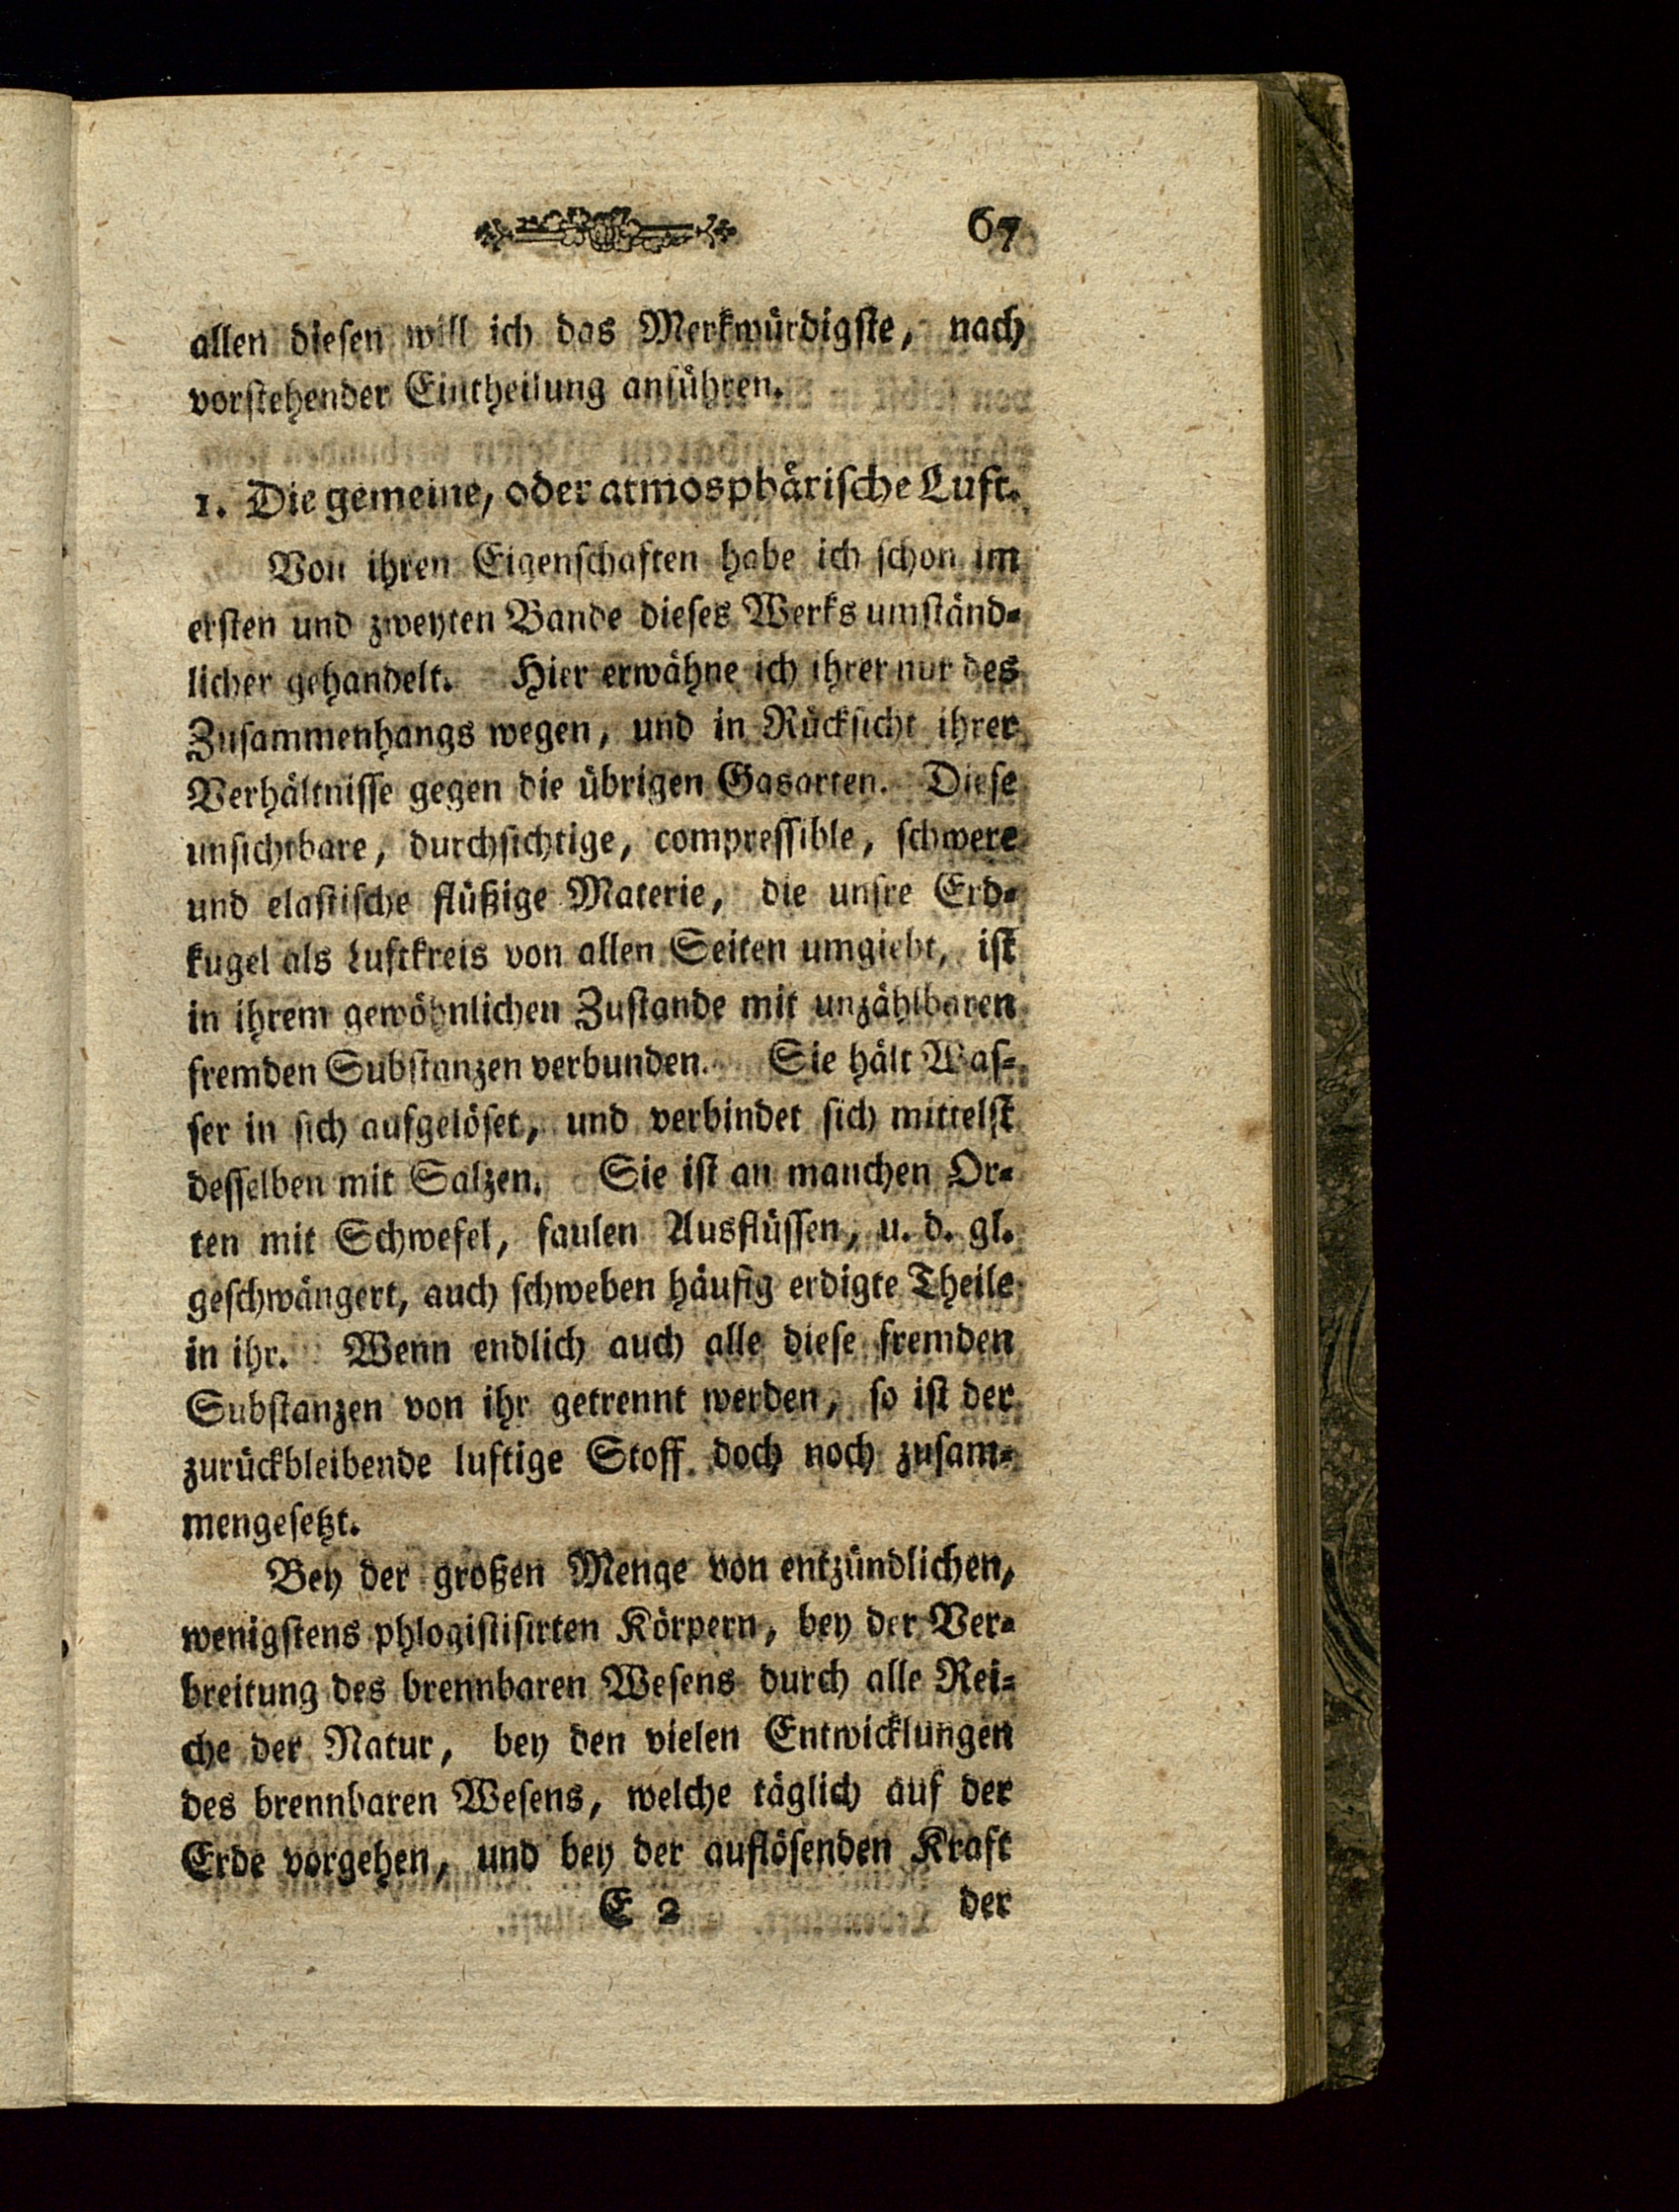 67
allen dieſen will ich das Merkwürdigſte, nach
vorſtehender Eintheilung anführen.
1. Die gemeine, oder atmosphäriſche Luft.
Von ihren Eigenſchaften habe ich ſchon im
erſten und zweyten Bande dieſes Werks umſtänd⸗
licher gehandelt. Hier erwähne ich ihrer nur des
Zuſammenhangs wegen, und in Rückſicht ihrer
Verhältniſſe gegen die übrigen Gasarten. Dieſe
unſichtbare, durchſichtige, compreſſible, ſchwere
und elaſtiſche flüßige Materie, die unſre Erd⸗
kugel als Luftkreis von allen Seiten umgiebt, iſt
in ihrem gewöhnlichen Zuſtande mit unzählbaren
fremden Subſtanzen verbunden. Sie hält Waſ⸗
ſer in ſich aufgelöſet, und verbindet ſich mittelſt
deſſelben mit Salzen. Sie iſt an manchen Or⸗
ten mit Schwefel, faulen Ausflüſſen, u. d. gl.
geſchwängert, auch ſchweben häufig erdigte Theile
in ihr. Wenn endlich auch alle dieſe fremden
Subſtanzen von ihr getrennt werden, ſo iſt der
zurückbleibende luftige Stoff doch noch zuſam⸗
mengeſetzt.
Bey der großen Menge von entzündlichen,
wenigſtens phlogiſtiſirten Körpern, bey der Ver⸗
breitung des brennbaren Weſens durch alle Rei⸗
che der Natur, bey den vielen Entwicklungen
des brennbaren Weſens, welche täglich auf der
Erde vorgehen, und bey der auflöſenden Kraft
E 2 der